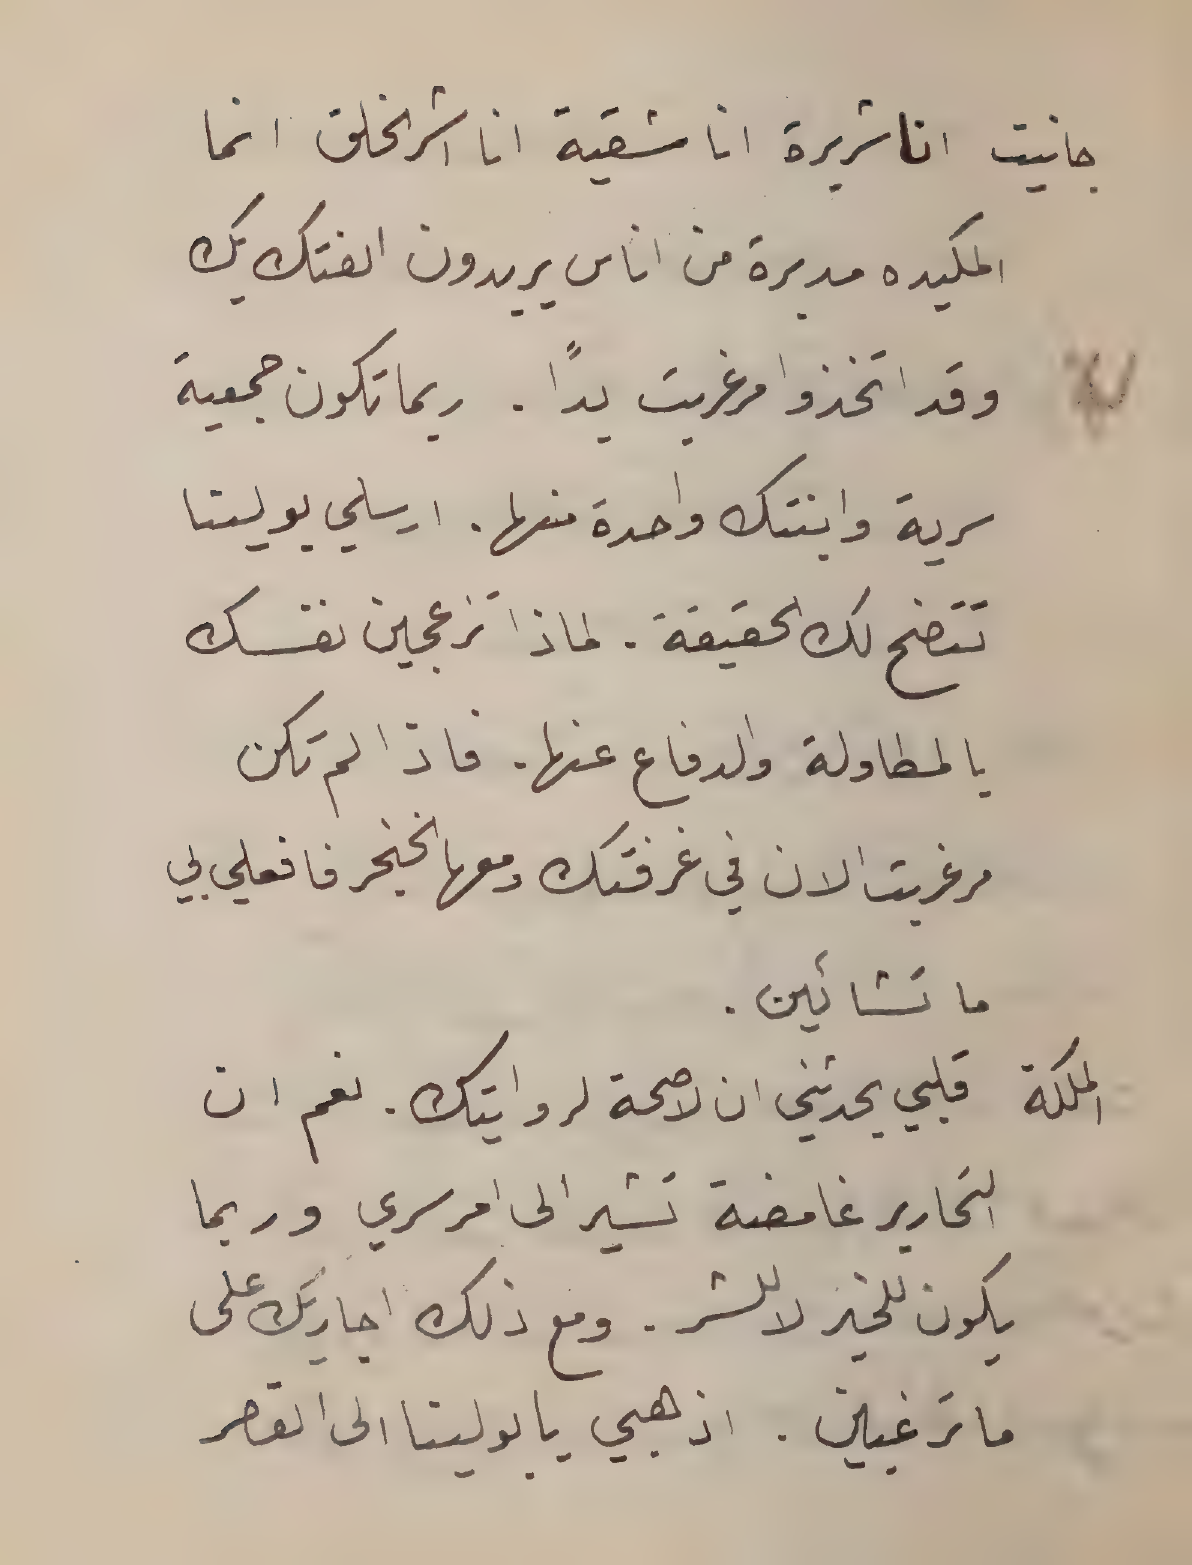 جانيت انا شريرة انا شقية انا اشر الخلق انما
المكيده مدبرة من اناس يريدون الفتك بك
وقد اتخذوا مرغريت يدًا . ربما تكون جمعية
سرية وابنتك واحدة منها . ارسلي بوليتا
تتضح لك الحقيقة . لماذا تزعجين نفسك
بالمطاولة والدفاع عنها . فاذا لم تكن
مرغريت الان في غرفتك ومعها الخنجر فافعلي بي
ما تشائين .
الملكة قلبي يحدثني ان لاصحة لروايتك . نعم ان
التحارير غامضة تشير الى امر سري وربما
يكون للخير لا للشر . ومع ذلك اجاريك على
ما ترغبين . اذهبي يا بوليتا الى القصر